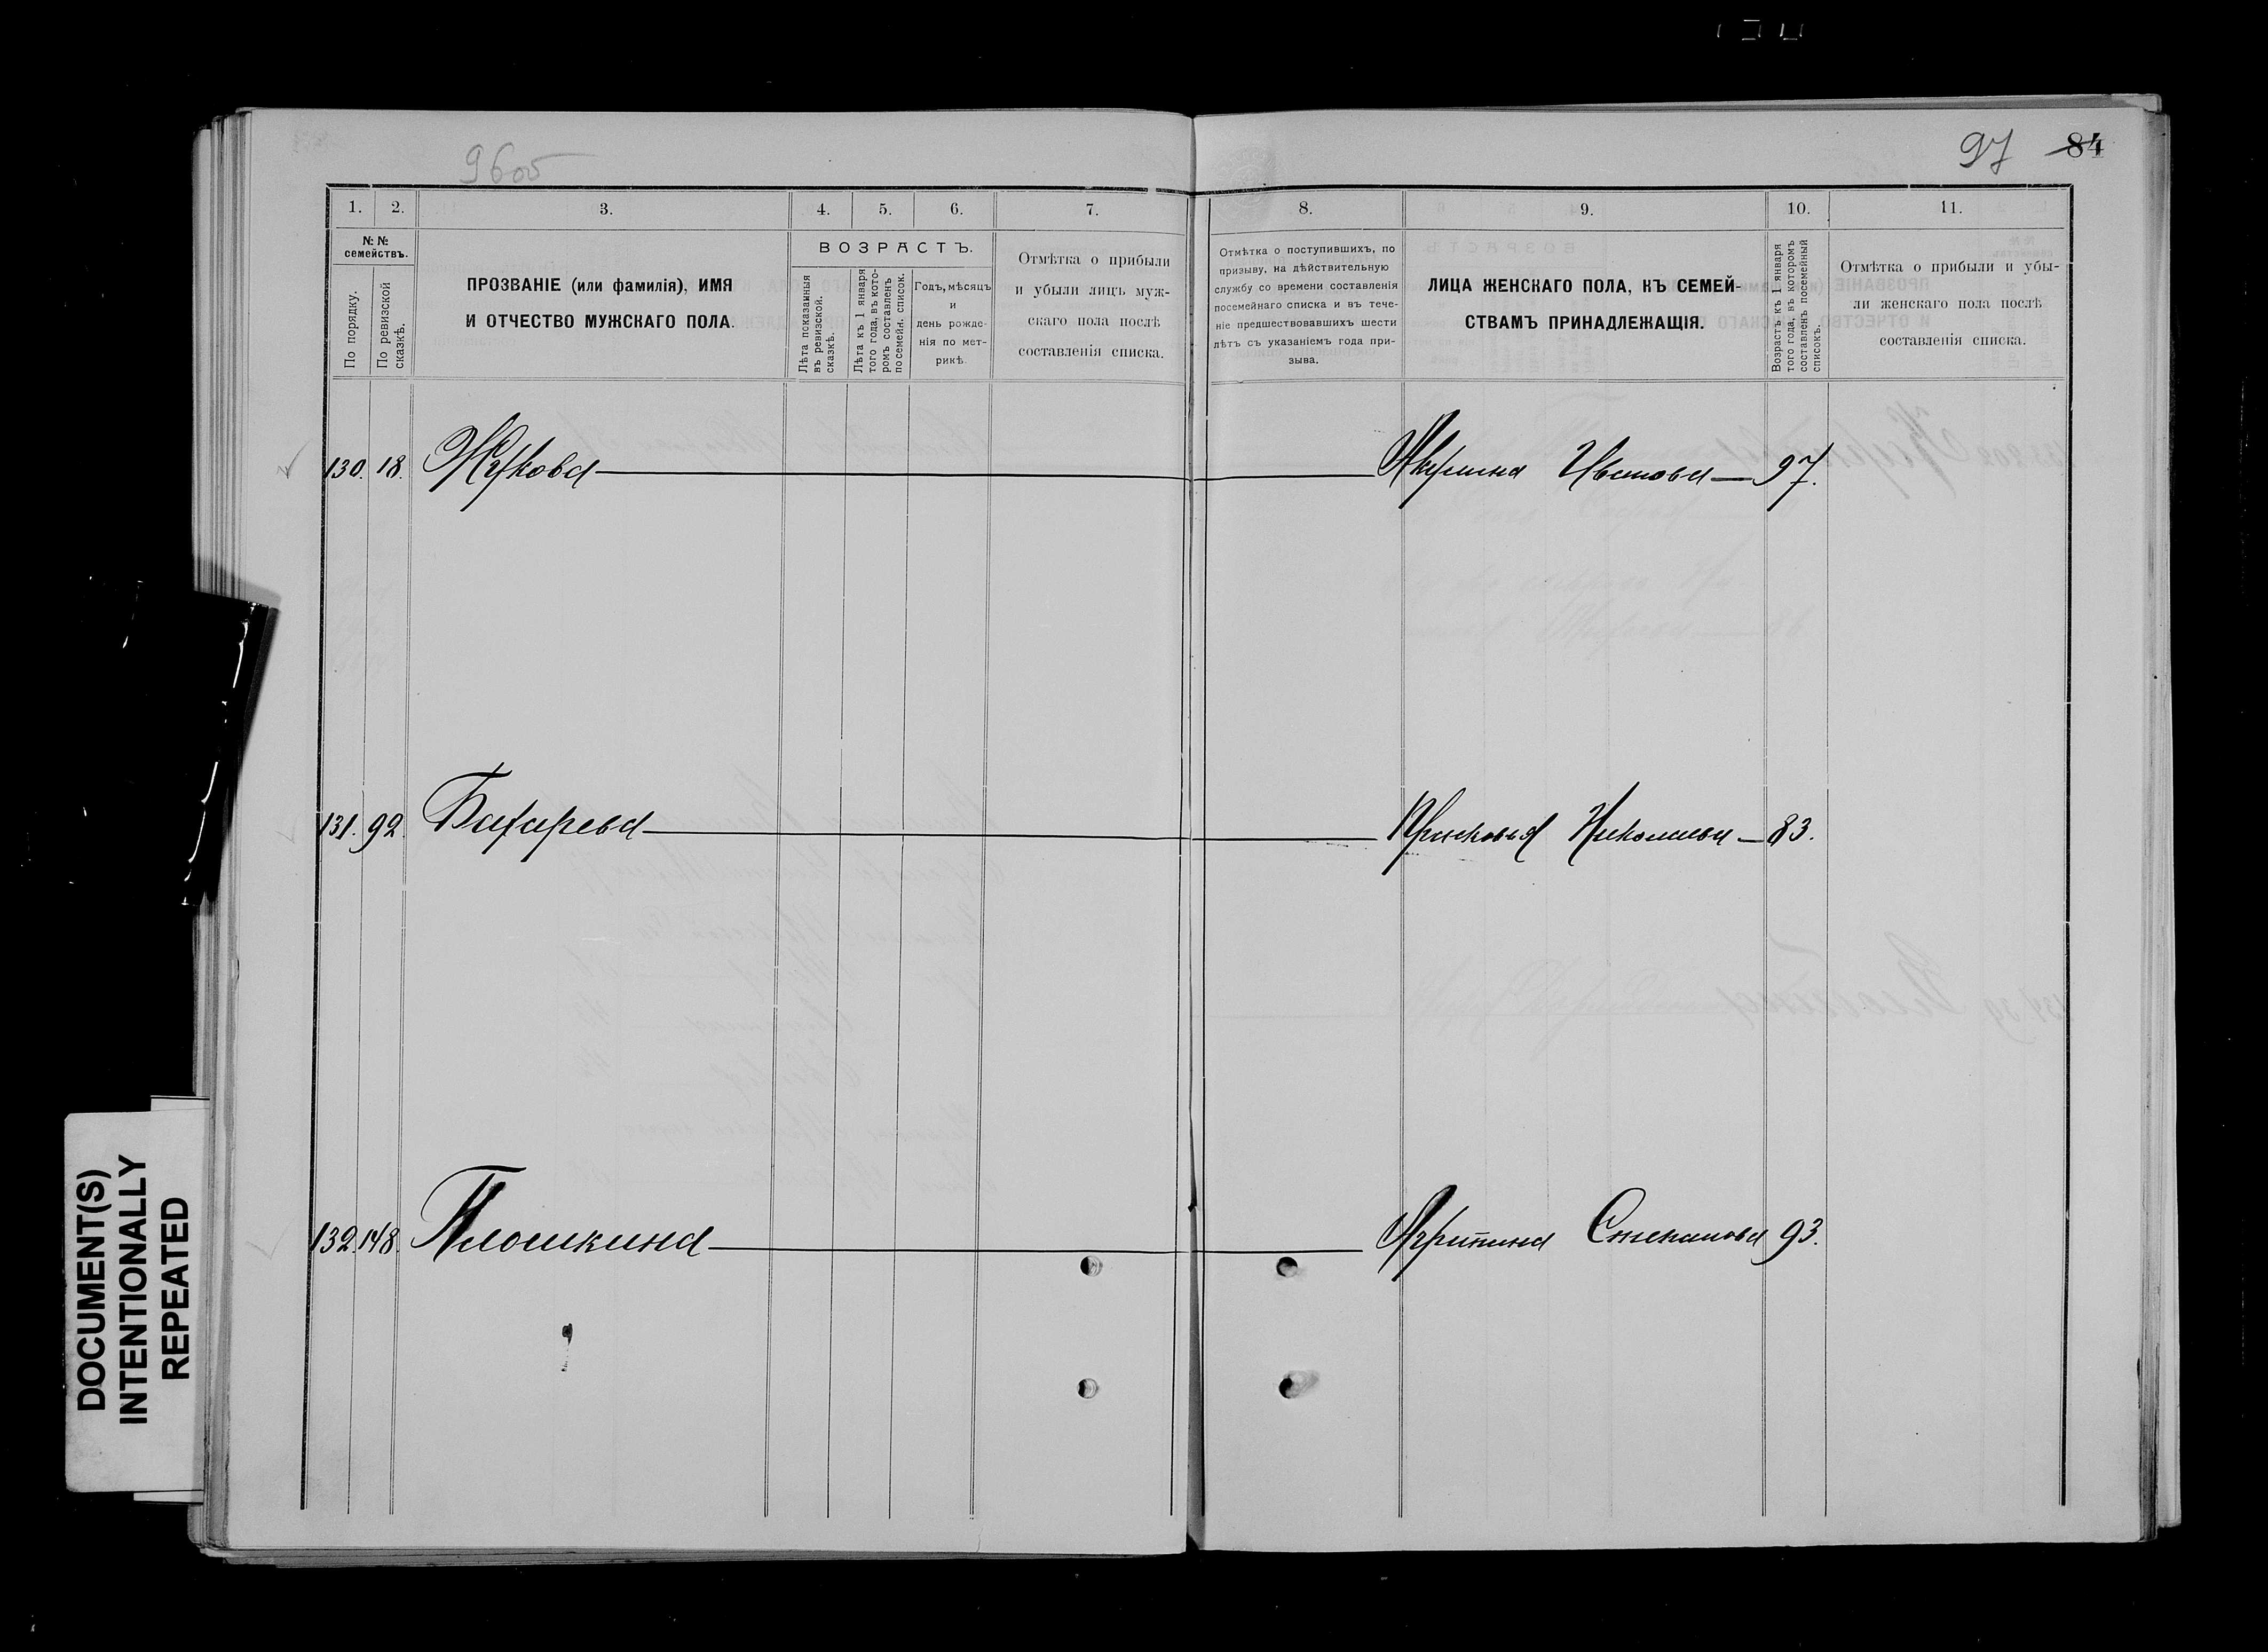 96об
97 84
1. 2. 3. 4. 5. 6. 7. 8. 9. 10. 11.
№ №
семействъ.
По порядку.
По ревизской
сказкѣ.
ПРОЗВАНІЕ (или фамилія), ИМЯ
И ОТЧЕСТВО МУЖСКАГО ПОЛА.
ВОЗРАСТЪ.
Лѣта показанныя
въ ревизской
сказкѣ.
Лѣта къ 1 января
того года, въ кото-
ромъ составленъ
посемейн. список.
Годъ, мѣсяцъ
и
день рожде-
нія по мет-
рикѣ
Отмѣтка о прибыли
и убыли лицъ муж-
скаго пола послѣ
составленія списка.
Отмѣтка о поступившихъ, по
призыву, на дѣйствительную
службу со времени составленія
посемейнаго списка и въ тече-
ніе предшествовавшихъ шести
лѣтъ съ указаніемъ года при-
зыва.
ЛИЦА ЖЕНСКАГО ПОЛА, КЪ СЕМЕЙ-
СТВАМЪ ПРИНАДЛЕЖАЩІЯ.
Возрастъ къ 1 января
того года, въ которомъ
составленъ посемейный
списокъ.
Отмѣтка о прибыли и убы-
ли женскаго пола послѣ
составленія списка.
130. 18. Жукова — Акулина Иванова — 97.
131. 92. Прасковья Николаева — 83.
132. 148. Плошкина — Агрипина Степанова 93.
DOCUMENT(S)
INTENTIONALLY
REPEATED